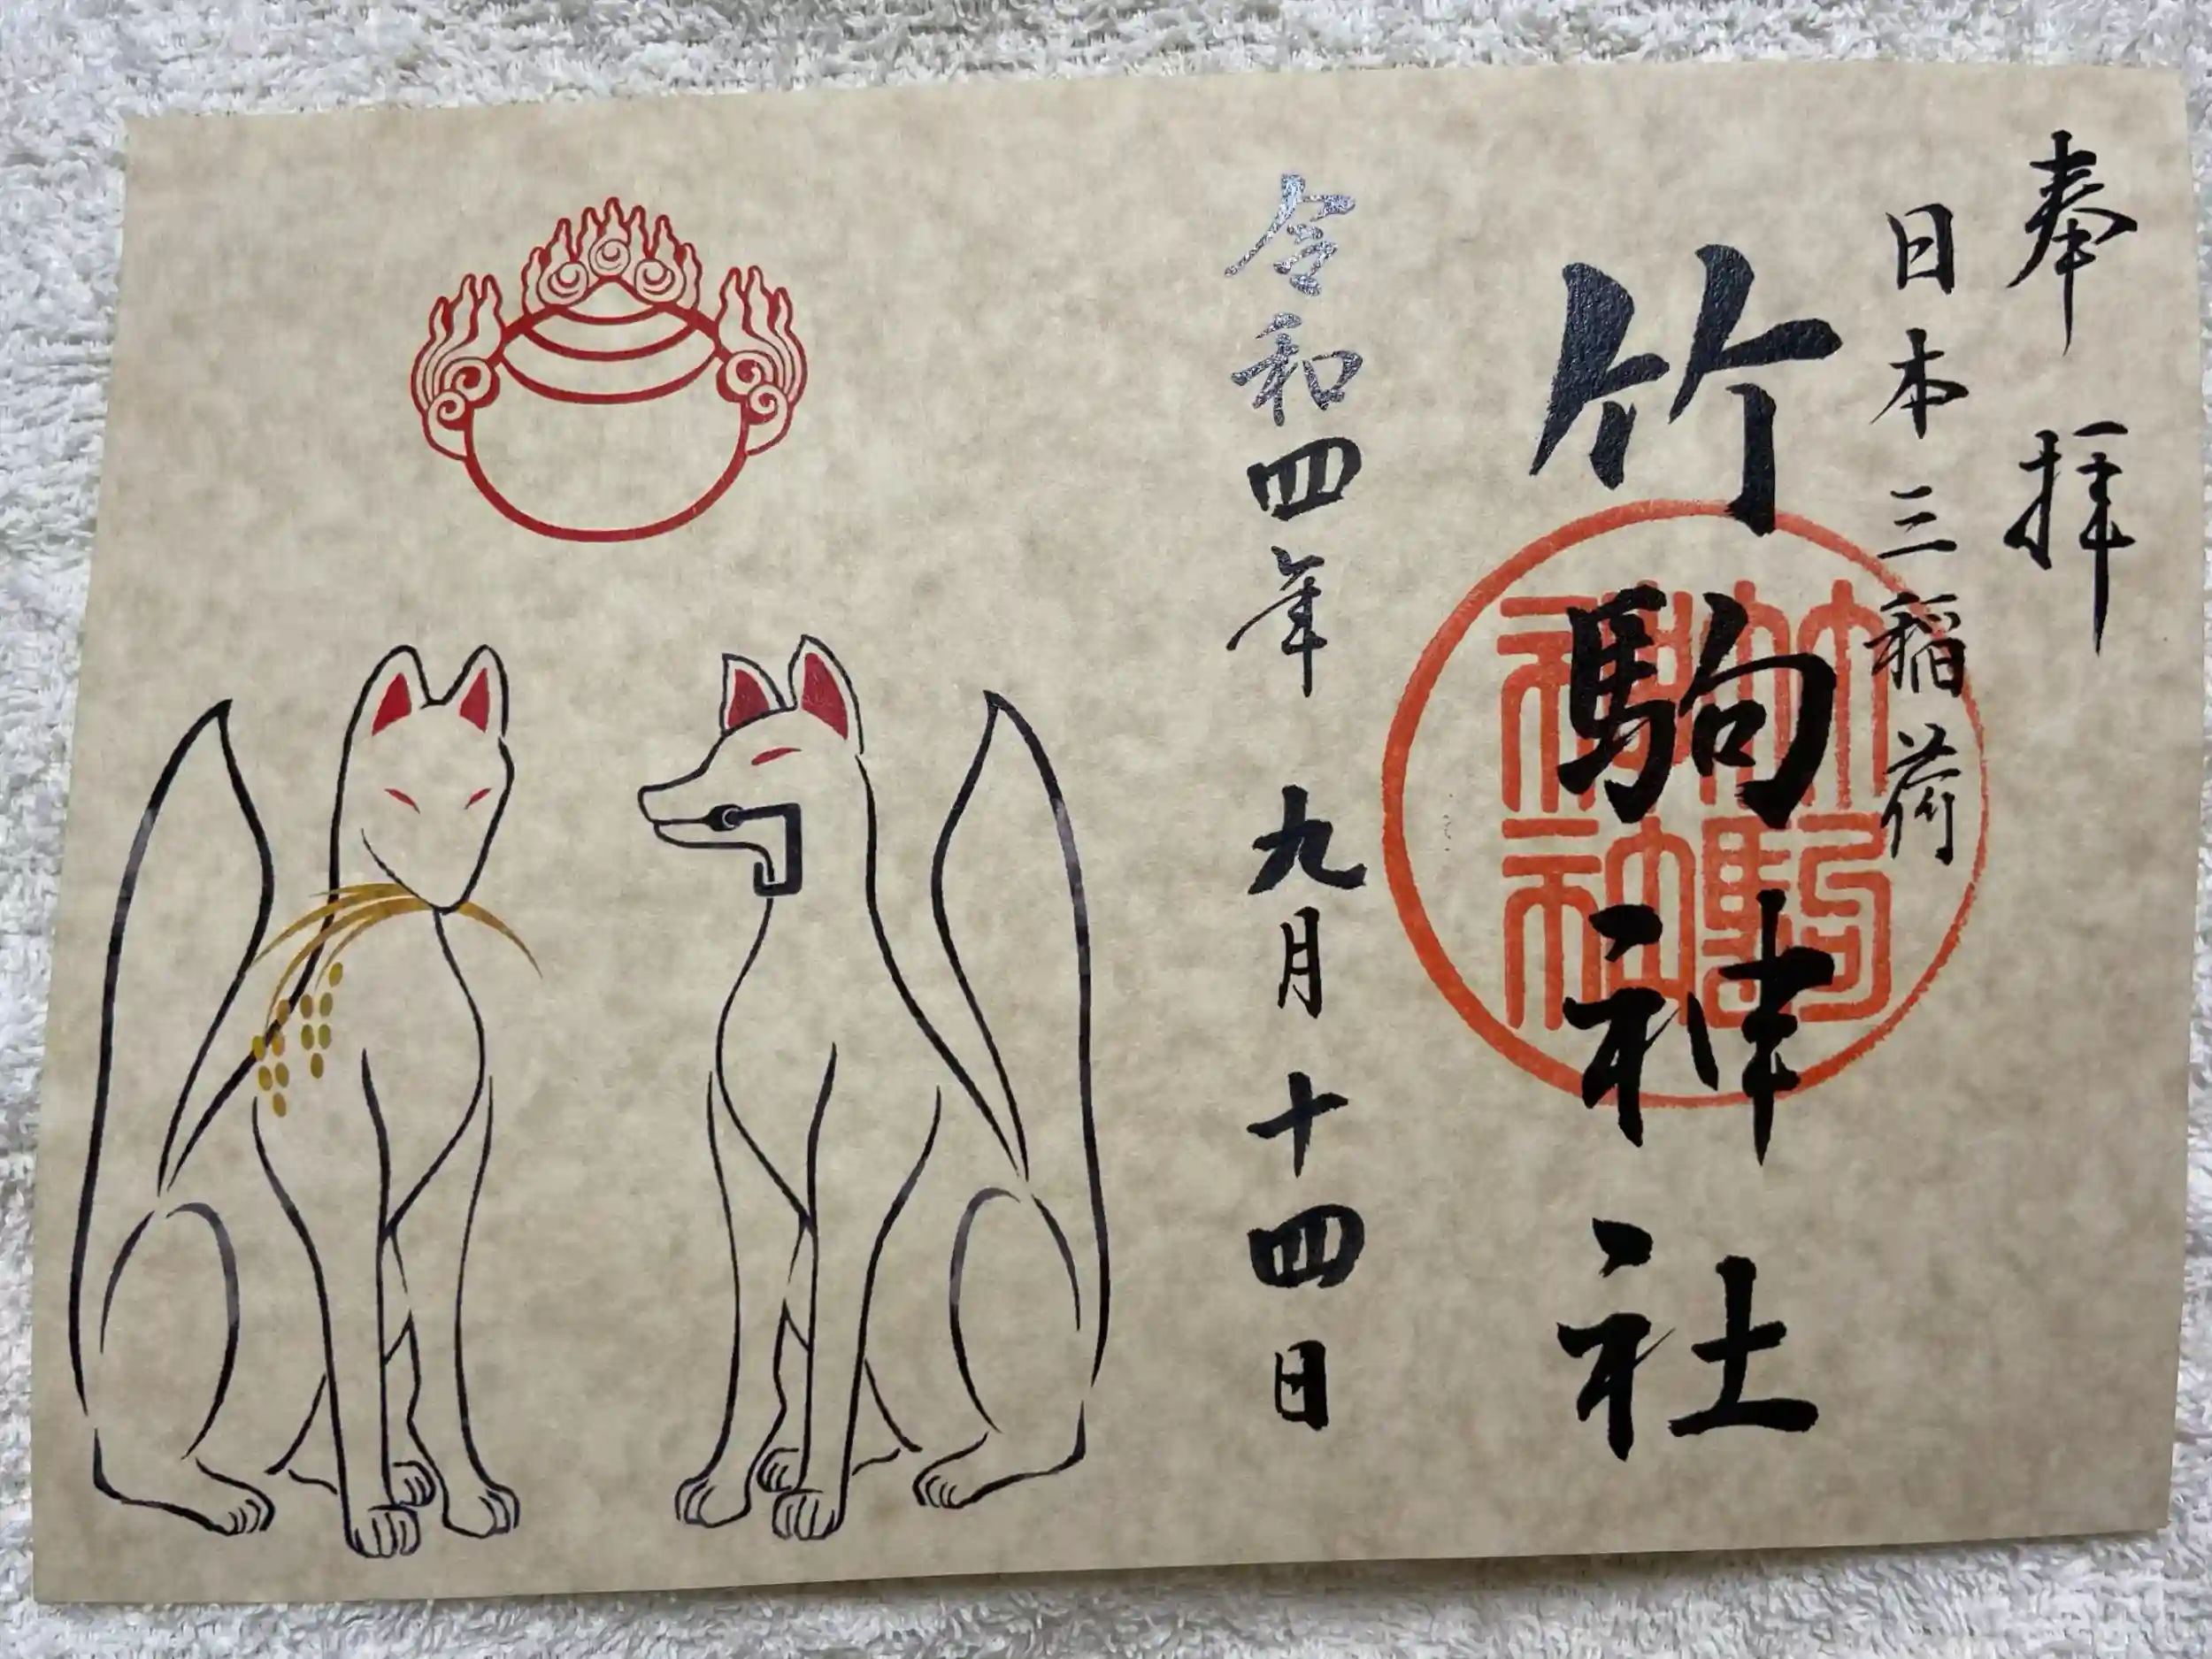 奉拝
日本三稲荷
竹駒神社
竹駒
神社
令和四年九月十四日